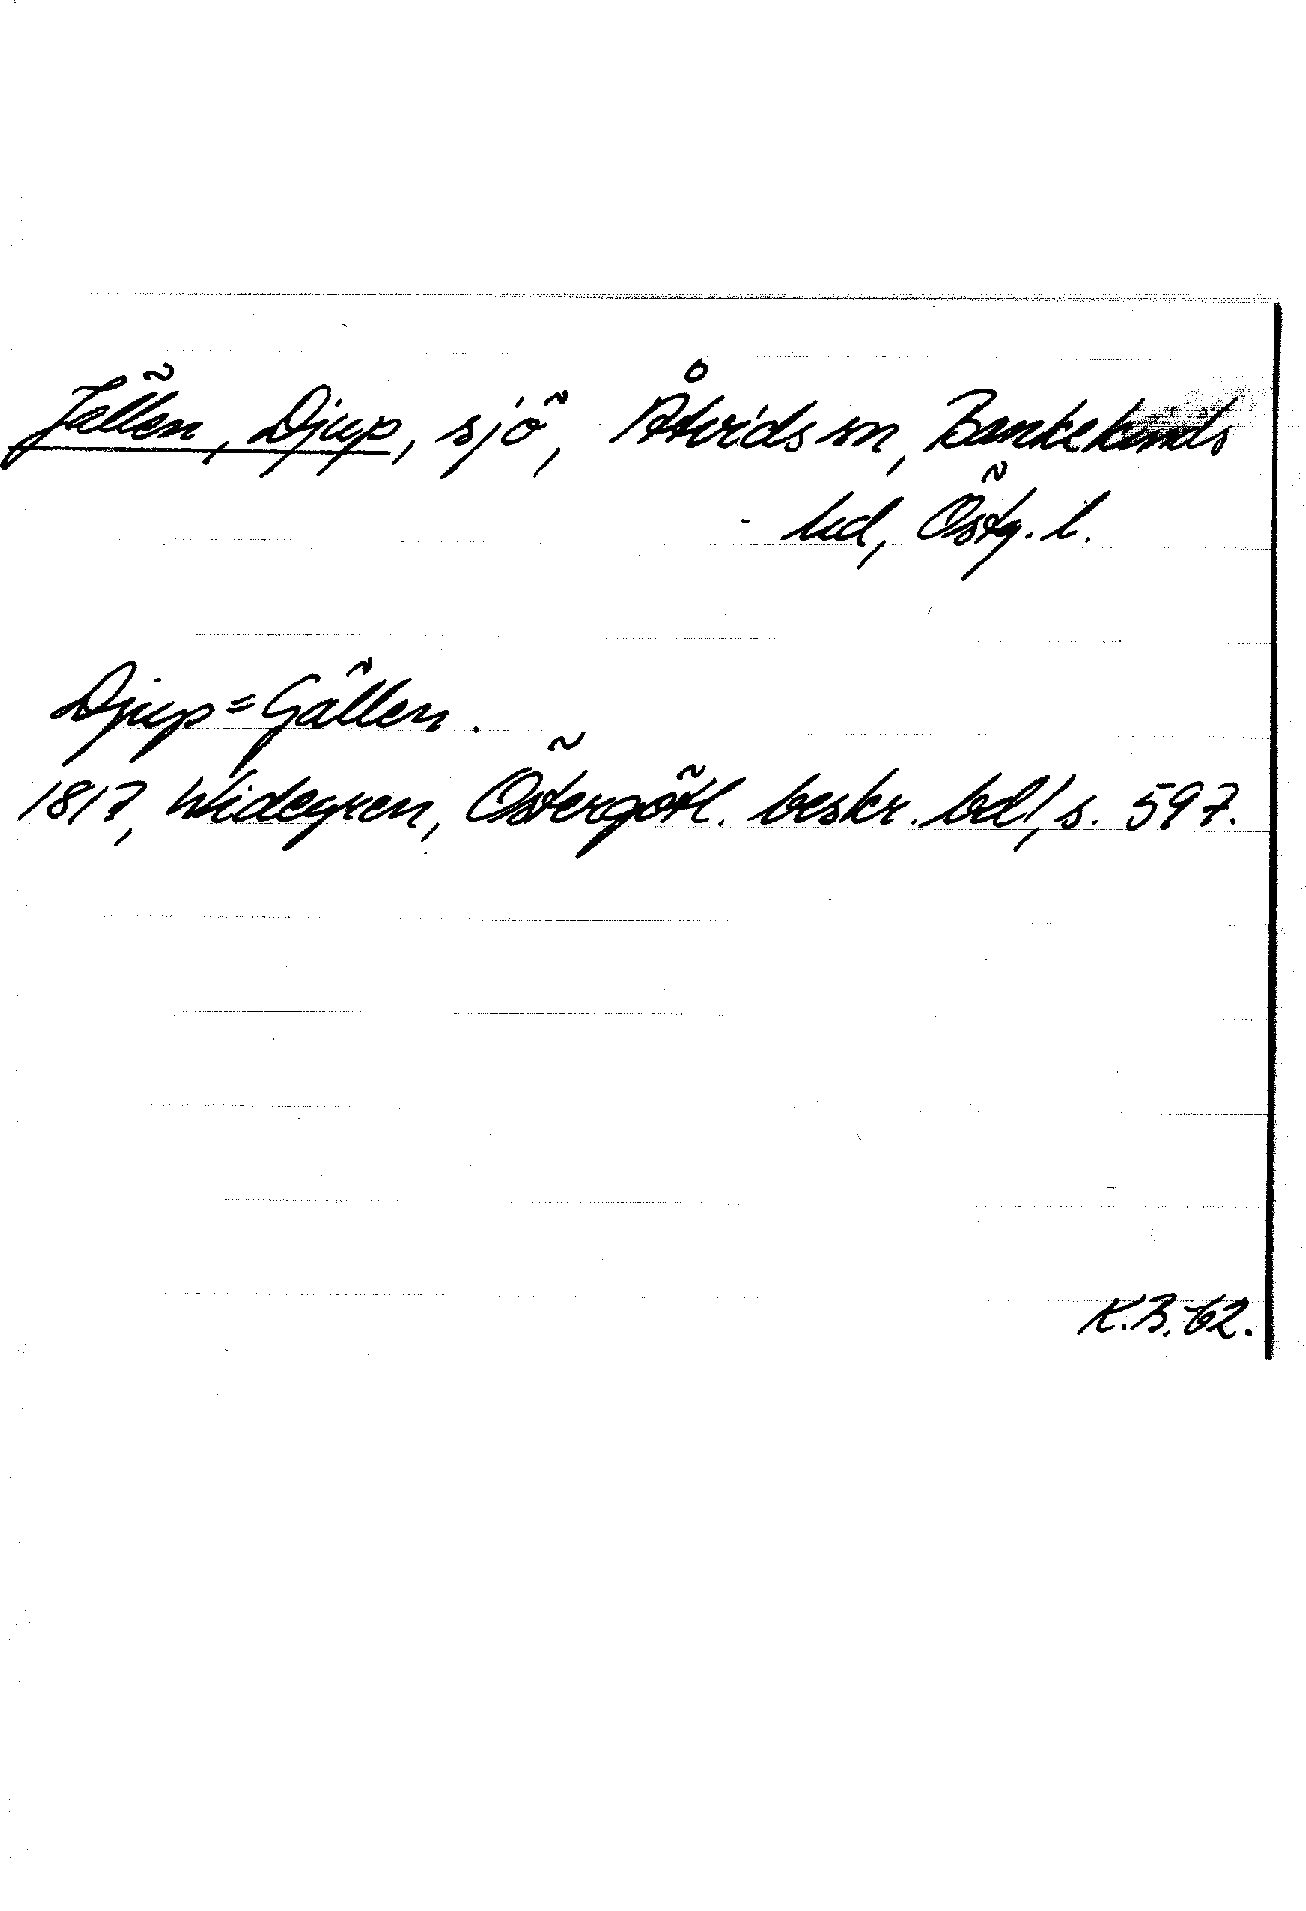 Jällen, Djup, sjö, Åtvids sn, Bankekinds
hd, Östg. l.
Djup=Gällen.
1817, Widegren, Östergötl. beskr. bd 1, s. 597.
K.B. 62.